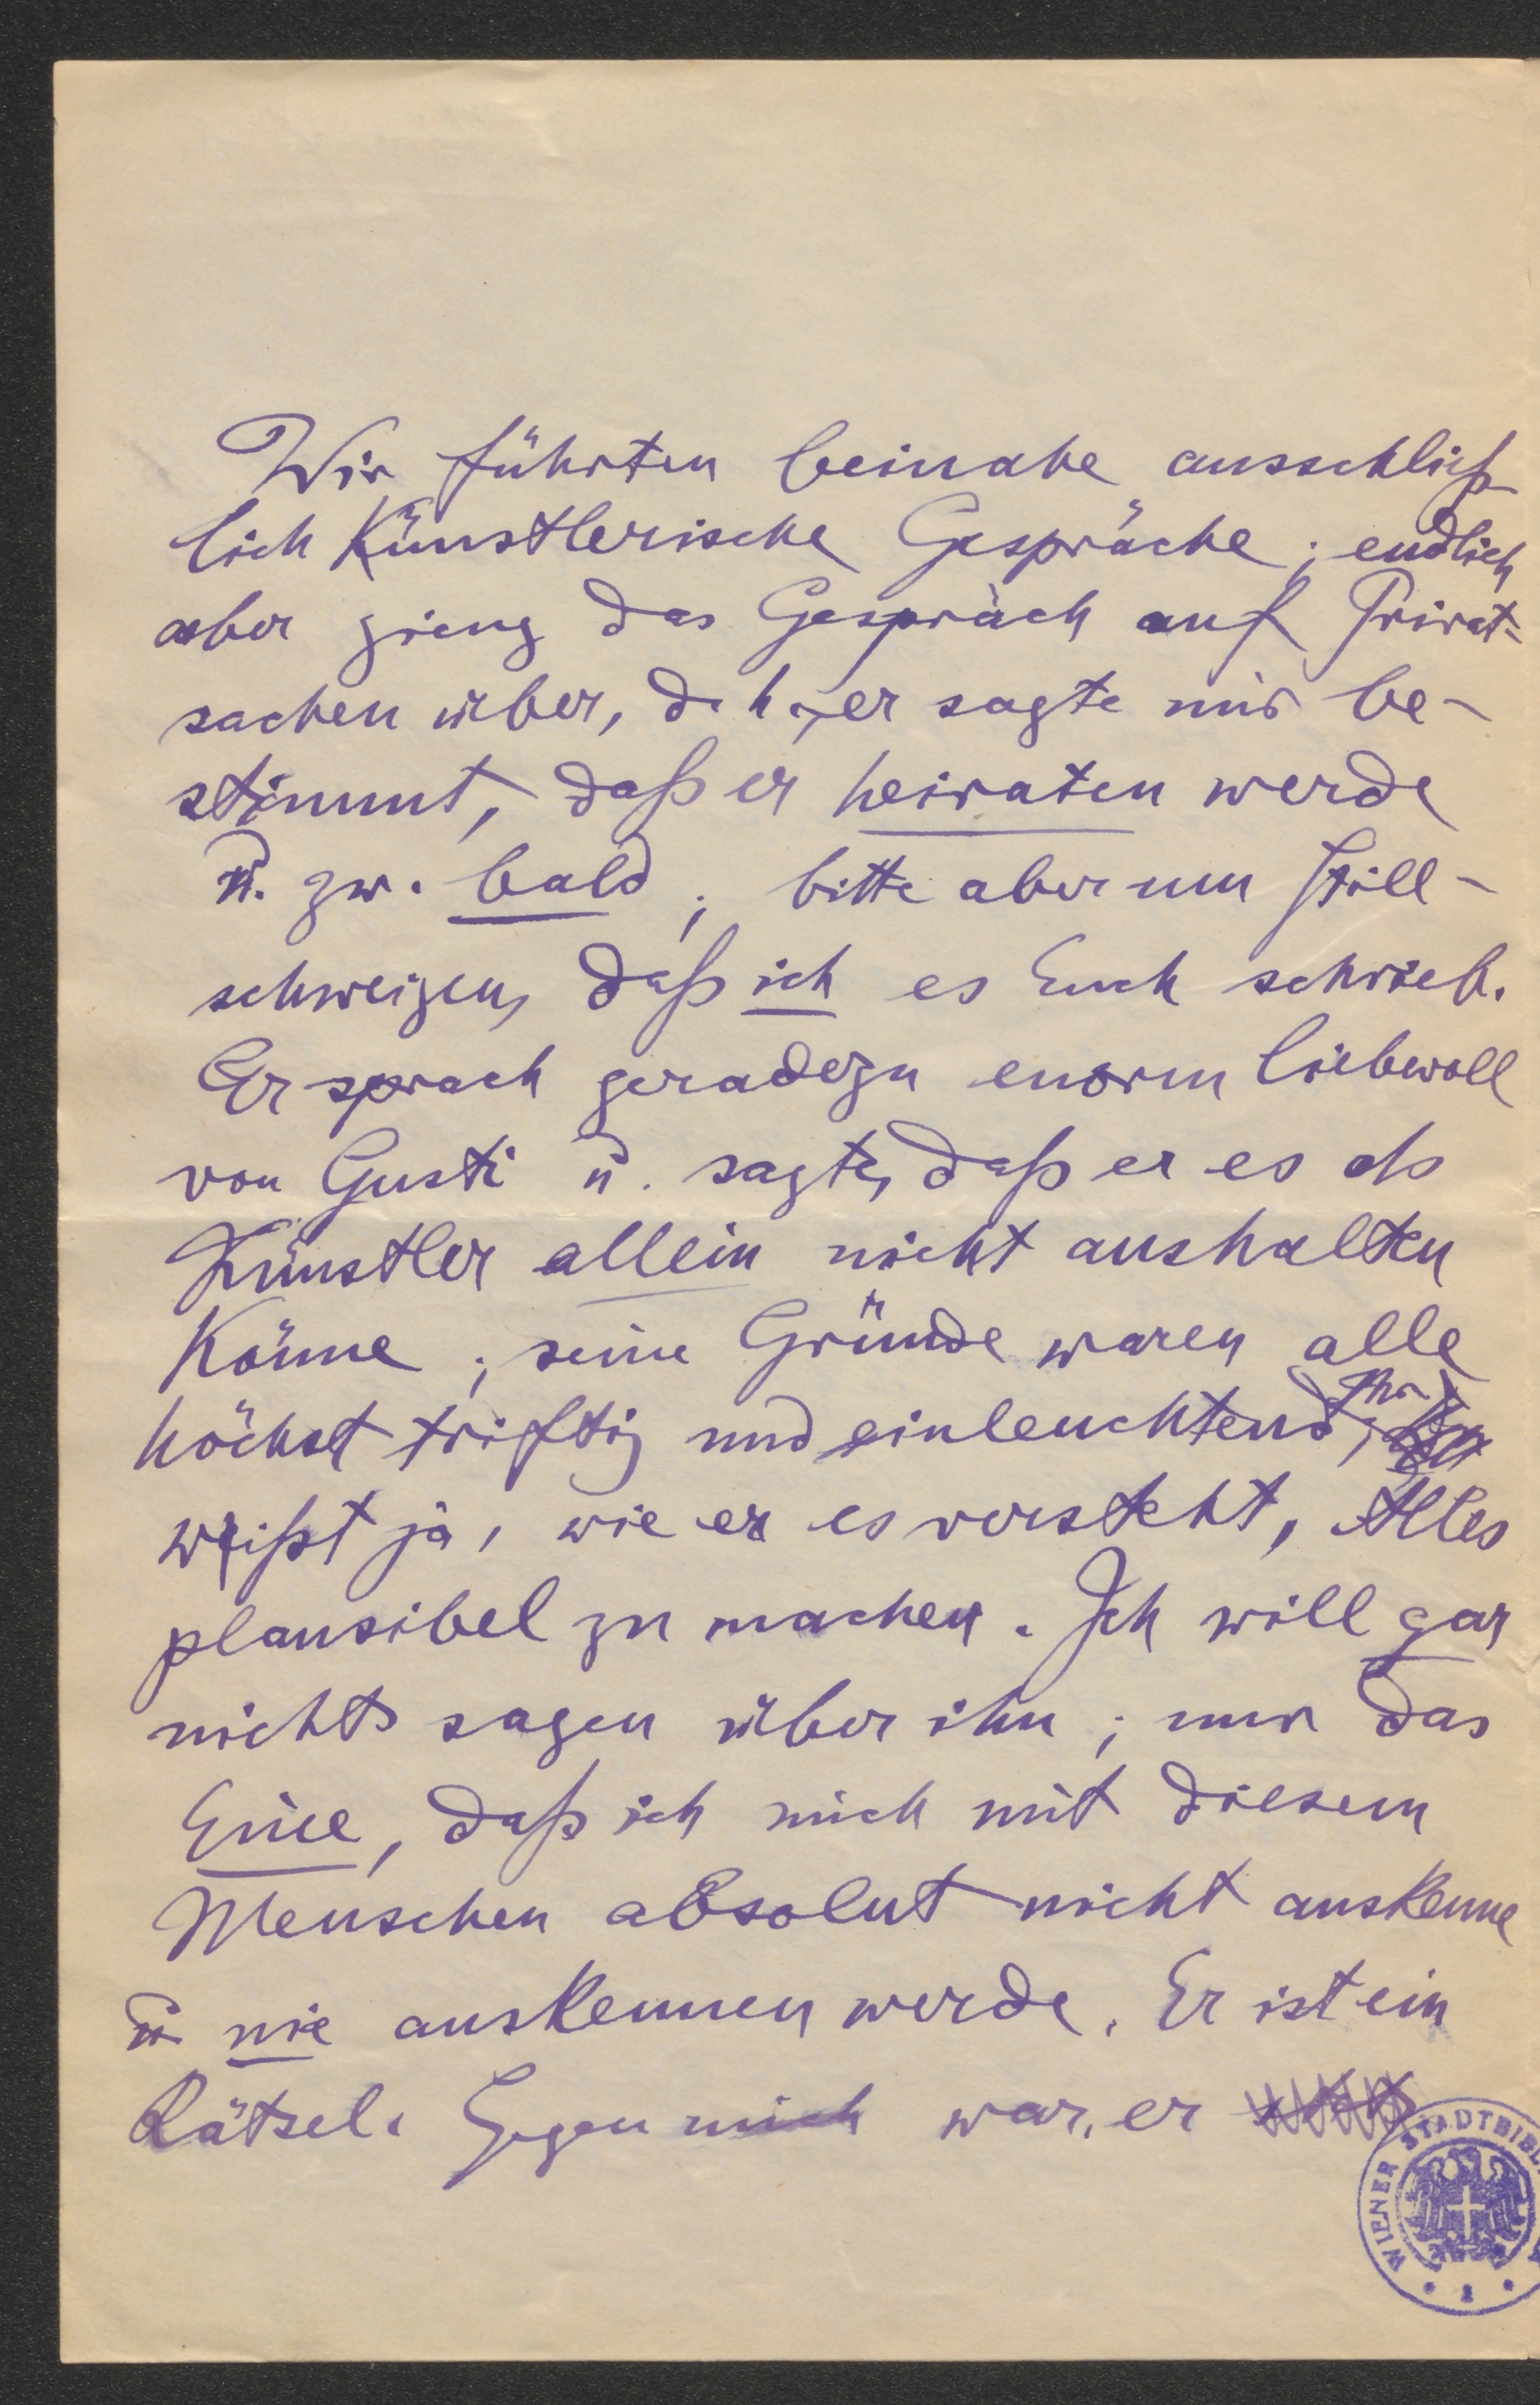 Wir führten beinahe ausschließ-
lich Künstlerische Gespräche; endlich
aber gieng das Gespräch auf Privat-
sachen über, d. h., er sagte mir be-
stimmt, daß er heiraten werde
u. zw. bald; bitte aber um Still-
schweigen, daß ich es Euch schrieb.
Er sprach geradezu enorm liebevoll
von Gusti u. sagte, daß er es als
Künstler allein nicht aushalten
Könne; seine Gründe waren alle
höchst triftig und einleuchtend; Ihr
wißt ja, wie er es versteht, Alles
plausibel zu machen. Ich will gar
nichts sagen über ihn; nur das
Eine, daß ich mich mit diesem
Menschen absolut nicht auskenne
u nie auskennen werde. Er ist ein
Rätsel. Gegen mich war er
WIENER STADTBIBL